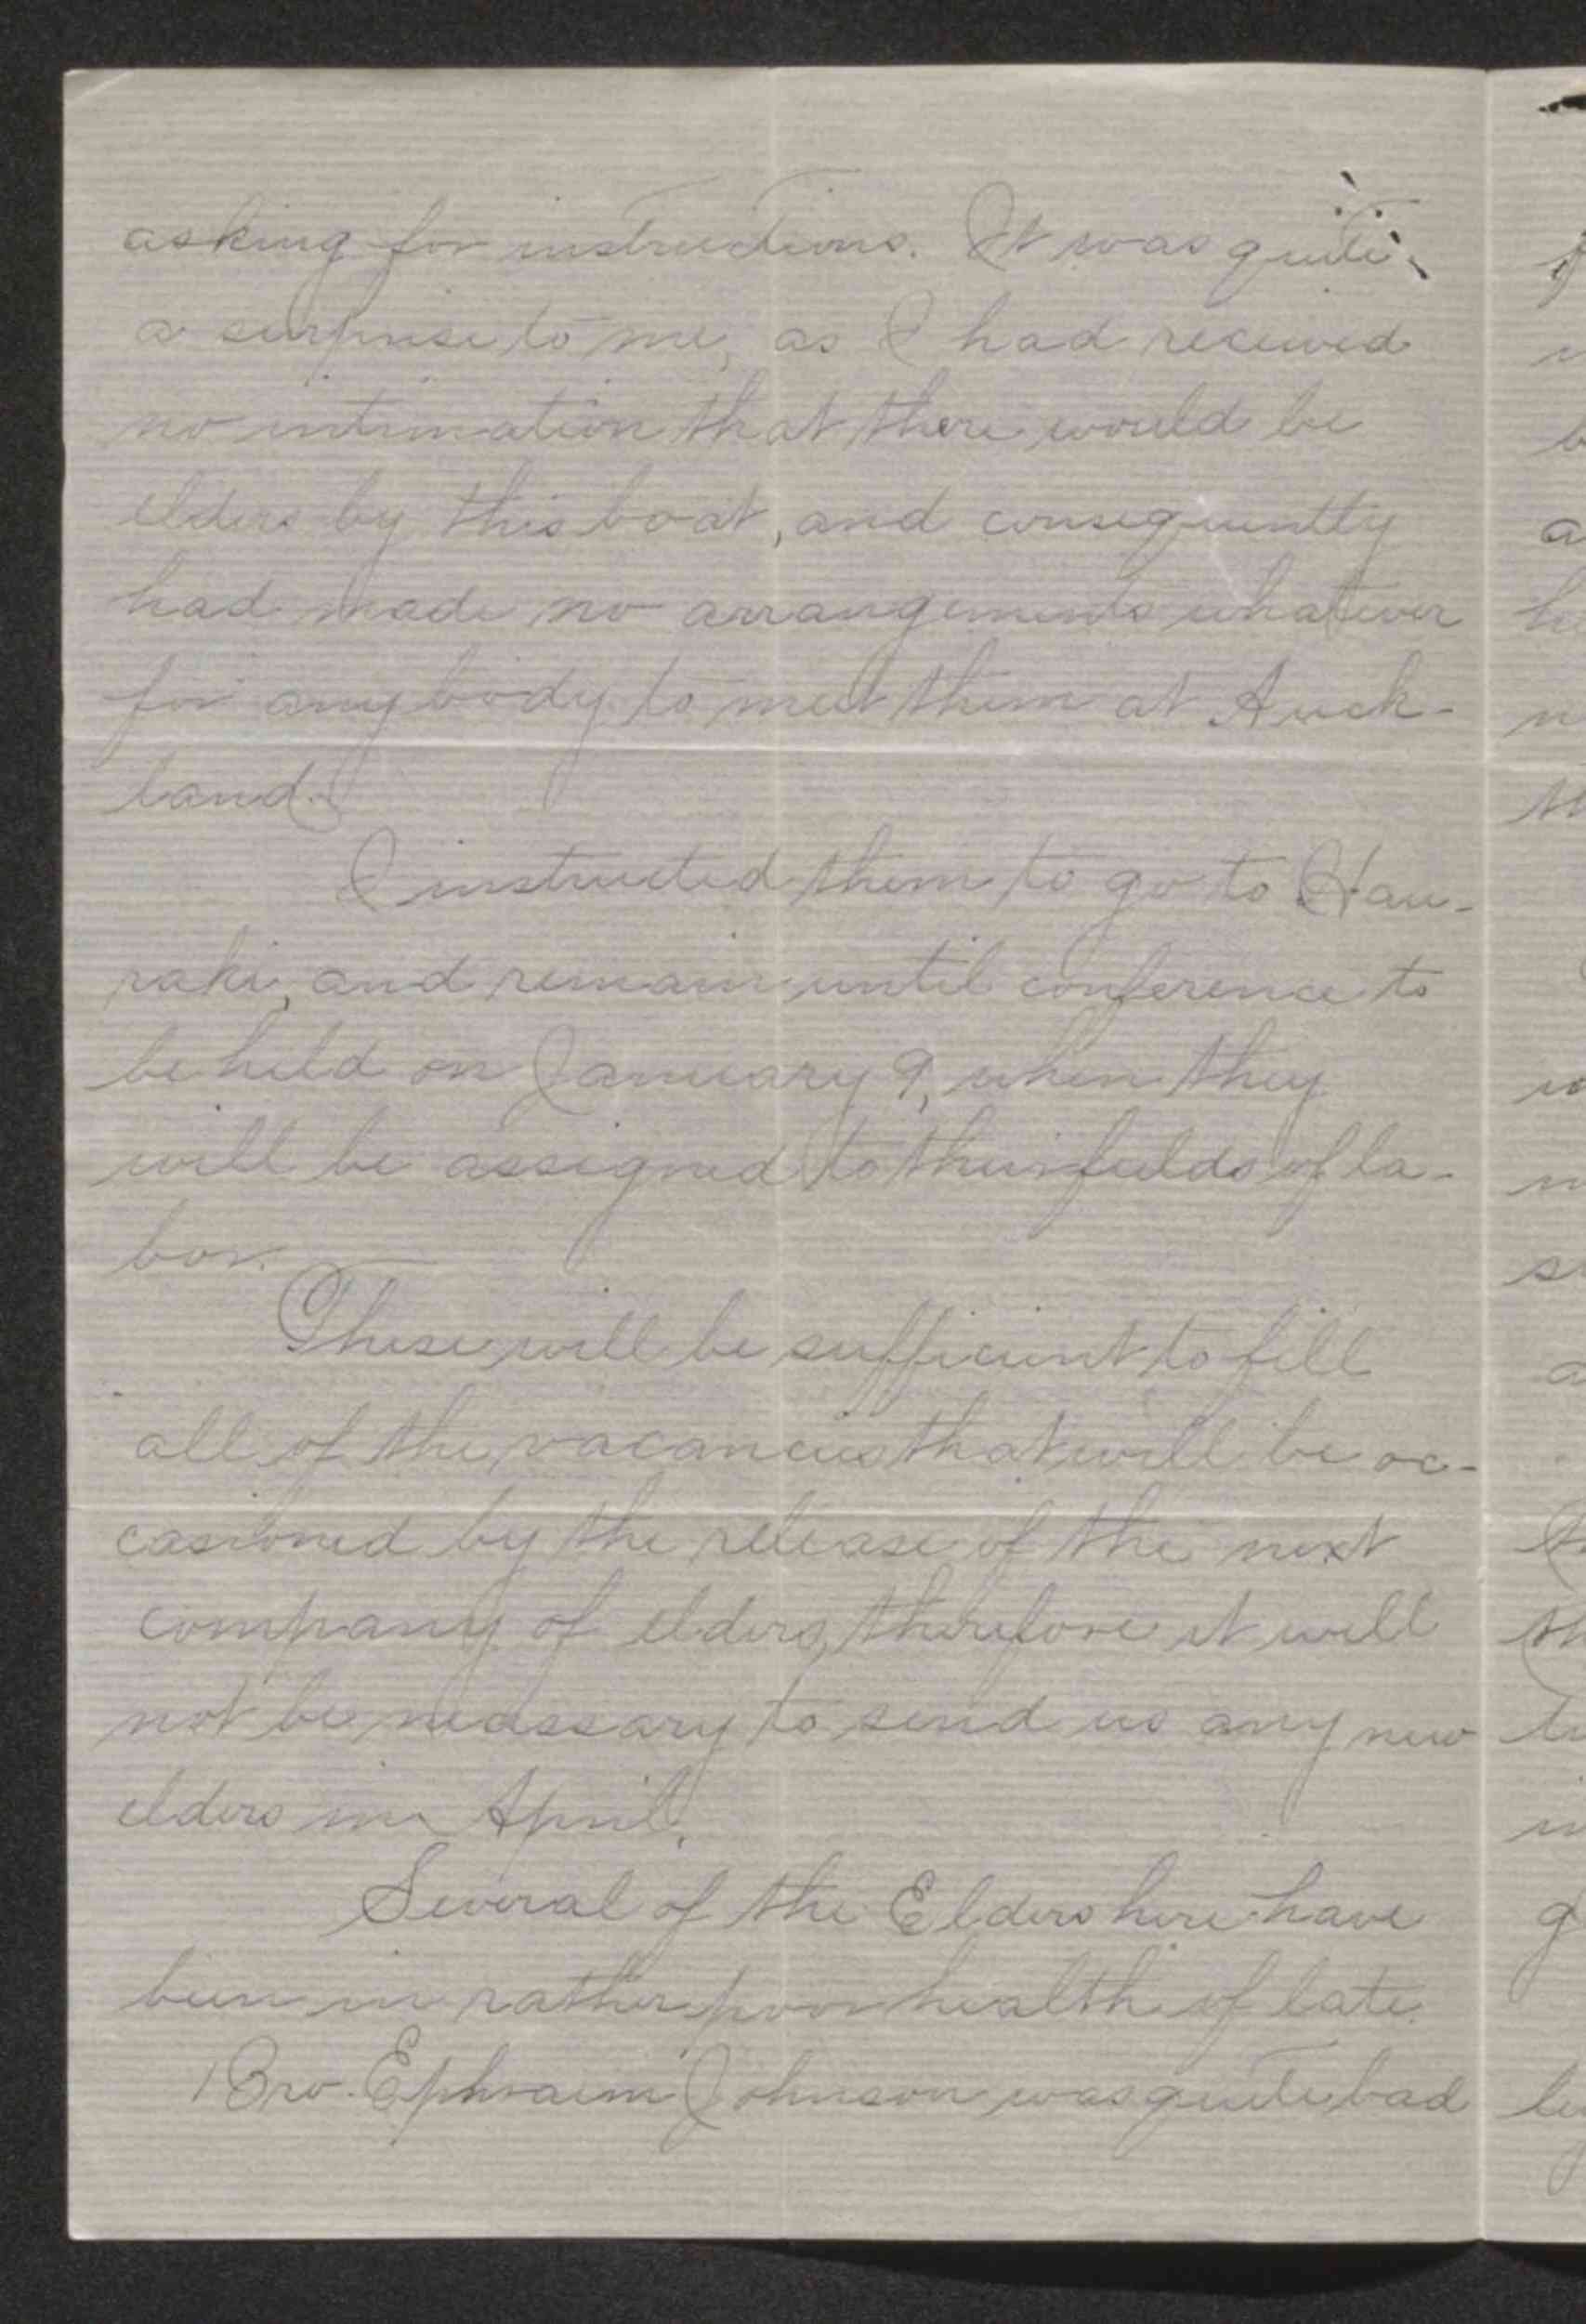 asking for instructions. It was quite
a surprise to me, as I had received
no intimation that there would be
elders by this boat, and consequently
had made no arrangements whatever
for anybody to meet them at Auck-
land.
I instructed them to go to Hau-
raki, and remain until conference to
be held on January 9, when they
will be assigned to their fields of la-
bor.
These will be sufficient to fill
all of the vacancies that will be oc-
casioned by the release of the next
company of elders, therefore it will
not be necessary to send us any new
elders in April.
Several of the Elders here have
been in rather poor health of late.
Bro. Ephraim Johnson was quite bad